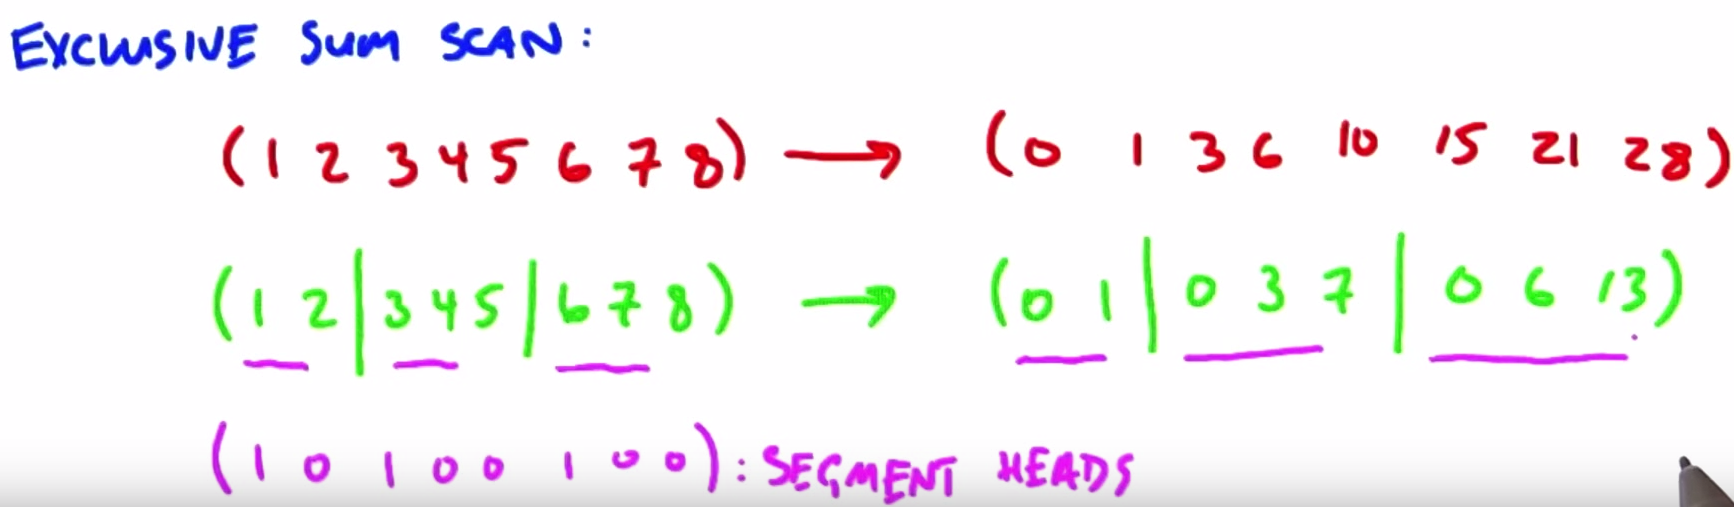 EXCLUSIVE SUM SCAN:
(1 2 3 4 5 6 7 8) → (0 1 3 6 10 15 21 28)
(1 2|3 4 5|6 7 8) → (0 1|0 3 7|0 6 13)
(1 0 1 0 0 1 0 0): SEGMENT HEADS